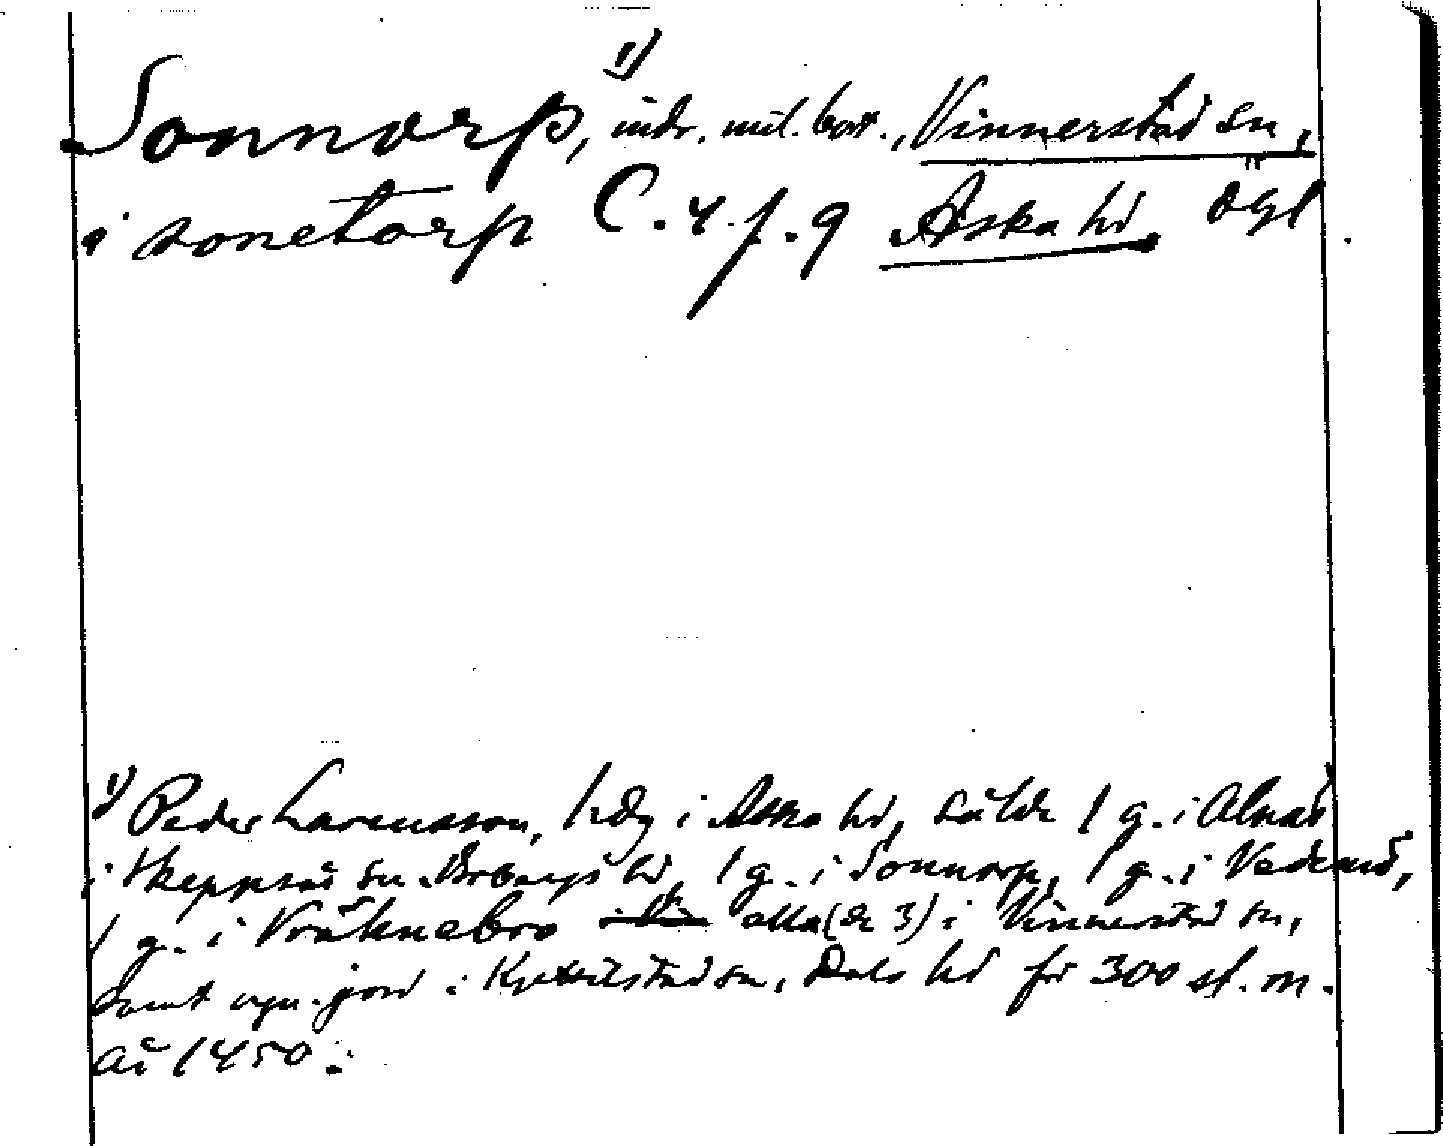 Sonnorp, ¹⁾ indr. mil. bost., Vinnerstad sn,
i sonetorp C. 4. f. 9 Aska hd. Ögl
¹⁾ Peder Larensson, hdg i Aska hd, sålde 1 g. i Alnäs
i Skeppsås sn. Bobergs hd, 1 g. i Sonnorp, 1 g. i
1 g. i alla (de 3) i Vinnerstad sn,
samt jord i Kjettilstad sn, Dals hd för 300 sf. m.
år 1450.